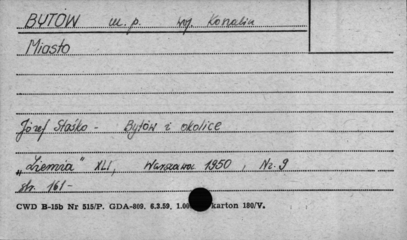 BYTÓW m. p. woj. Konalin
Miasto
Józef Staśko - Bytów i okolice
"Ziemia" XLI, Warszawa 1950, Nr. 9
str. 161-
CWD B-15b Nr 515/P. GDA-809. 6.3.59. 1.00 karton 180/V.